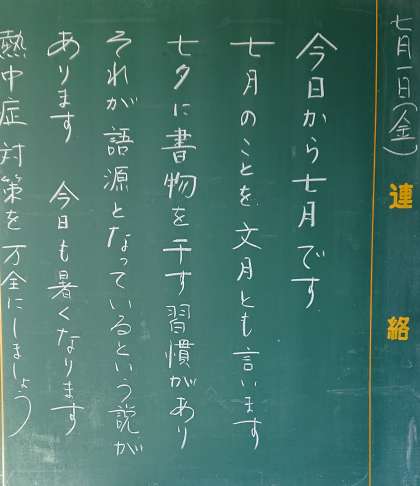 七月一日(金)
連絡
今日から七月です
七月のことを文月とも言います
七夕に書物を干す習慣があり
それが語源となっているという説が
あります 今日も暑くなります
熱中症対策を万全にしましょう